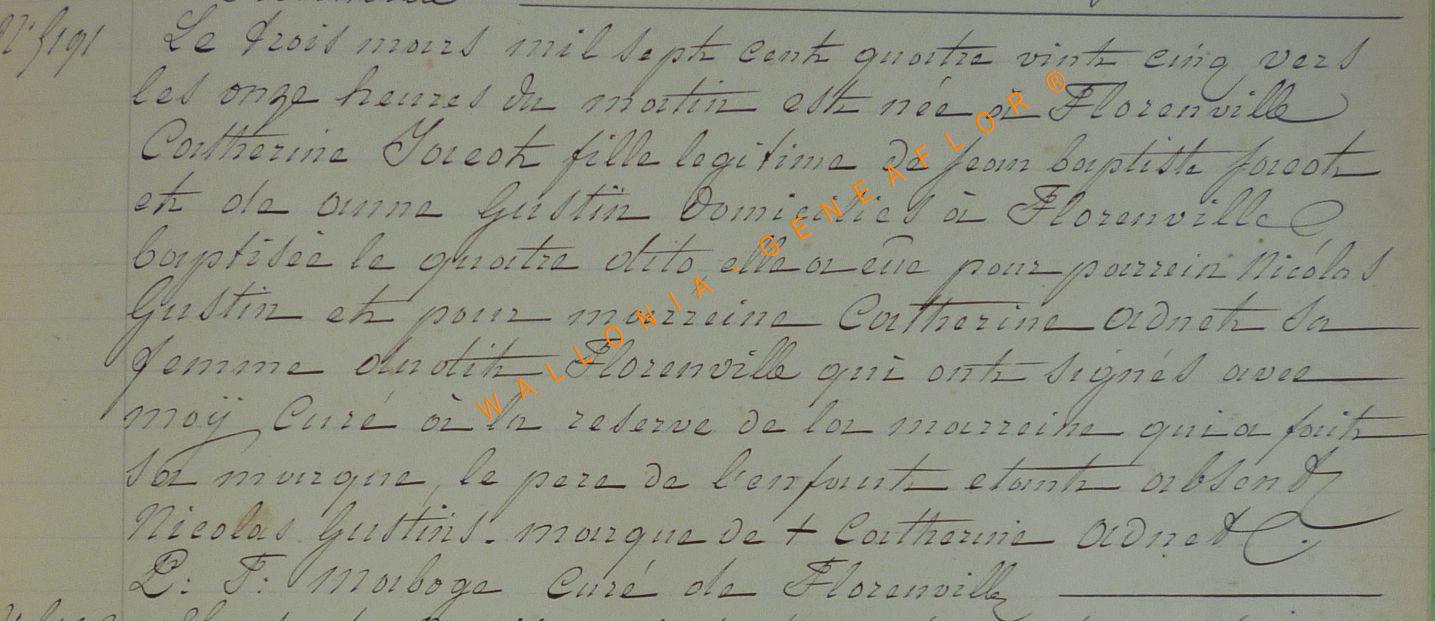 Le trois mars mil sept cent quatre vint cinq vers
les onze heures du matin est née à Florenville
Catherine Jacot fille legitime de jean baptiste jacot
et de anne Gustin Domiciliés à Florenville
baptisée le quatre dito elle a eûe pour parrein Nicolas
Gustin et pour marreine Catherine adnet sa
femme dudit Florenville qui ont signés avec
moÿ Curé à la reserve de la marreine qui a fait
sa marque, le pere de l'enfant etant absent
Nicolas Gustins. marque de + Catherine adnet.
P: F: Maboge Curé de Florenville
WALLONIA-GENEAFLOR ®